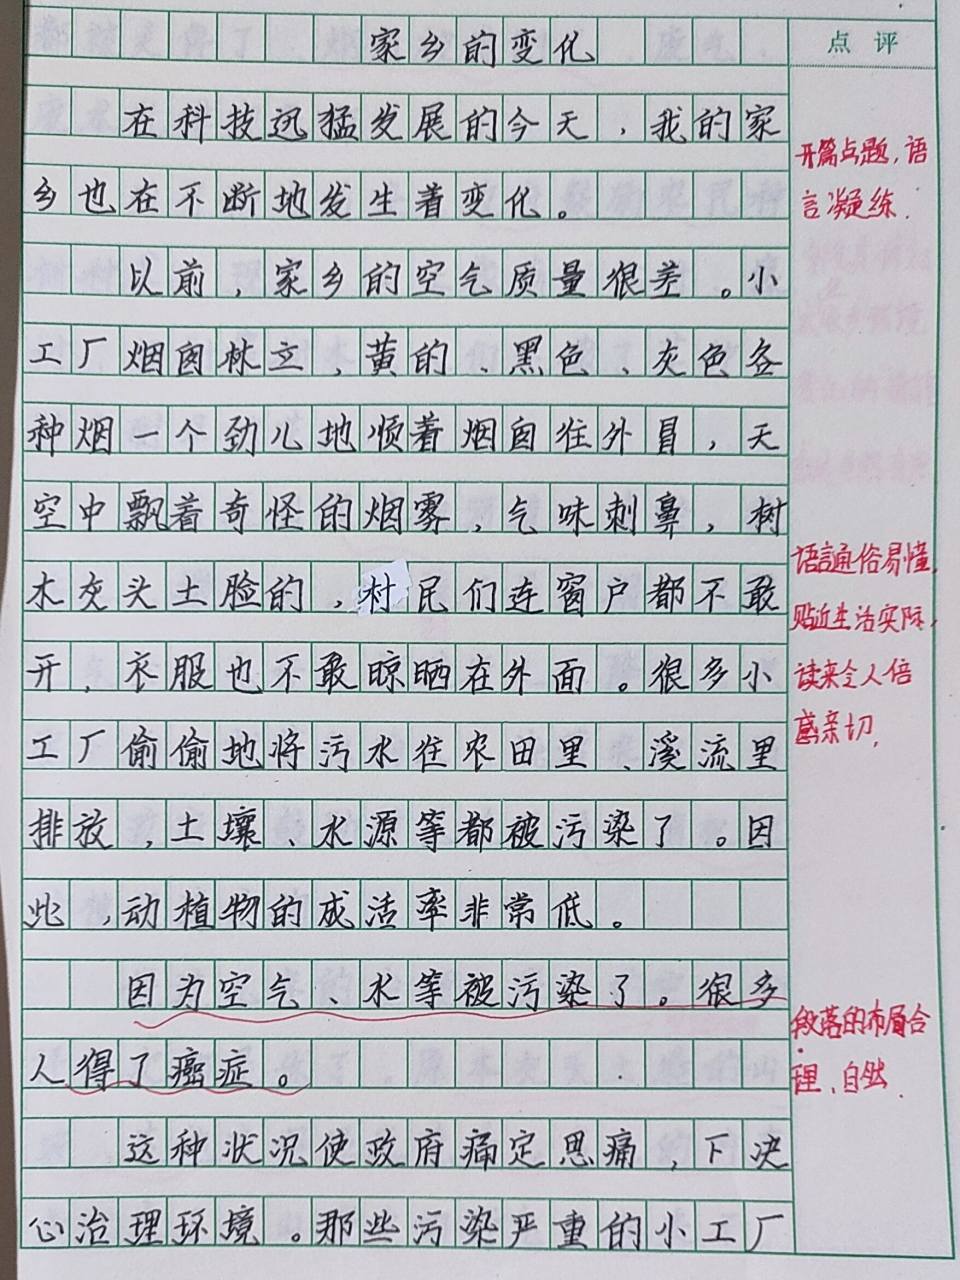 家乡的变化
点评
在科技迅猛发展的今天，我的家
乡也在不断地发生着变化。
以前，家乡的空气质量很差。小
工厂烟囱林立，黄的、黑色、灰色各
种烟一个劲儿地顺着烟囱往外冒，天
空中飘着奇怪的烟雾，气味刺鼻，树
木灰头土脸的，村民们连窗户都不敢
开，衣服也不敢晾晒在外面。很多小
工厂偷偷地将污水往农田里、溪流里
排放，土壤、水源等都被污染了。因
此，动植物的成活率非常低。
因为空气、水等被污染了。很多
人得了癌症。
这种状况使政府痛定思痛，下决
心治理环境。那些污染严重的小工厂
开篇点题，语
言凝练.
语言通俗易懂，
贴近生活实际，
读来令人倍
感亲切，
段落的布局合
理、自然.